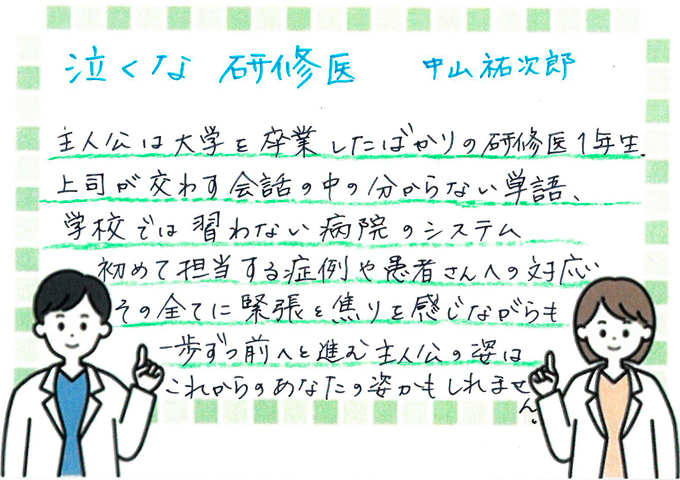 泣くな 研修医 中山祐次郎
主人公は大学を卒業したばかりの研修医1年生.
上司が交わす会話の中の分からない単語、
学校では習わない病院のシステム
初めて担当する症例や患者さんへの対応
その全てに緊張と焦りを感じながらも
一歩ずつ前へと進む主人公の姿は
これからのあなたの姿かもしれません.